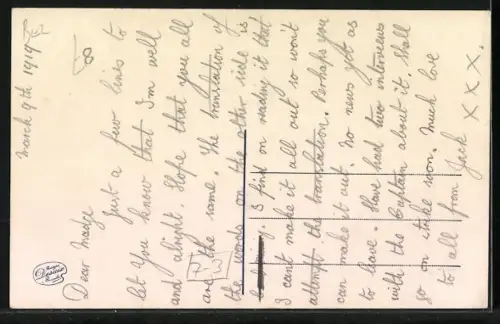 March 9th 1919
Dear Madge
Just a few lines to
let you know that I'm well
and alright Hope that you all
are the same. The translation of
the words on the other side is
I find on reading it that
I can't make it all out so won't
attempt the translation. Perhaps you
can make it out. No news yet as
to leave. Have had two interviews
with the Captain about it. Shall
go on strike soon. Much love
to all from Jack
X X X.